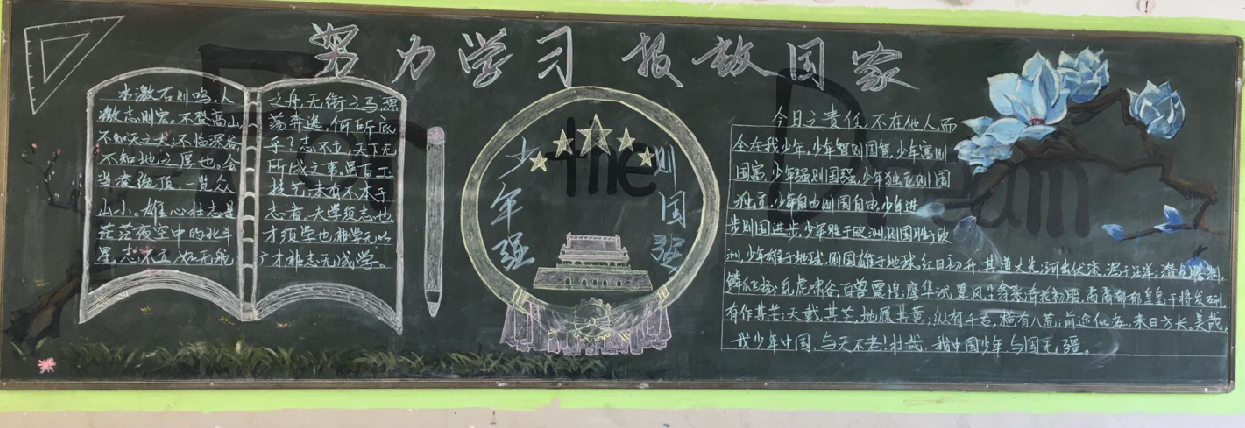 努力学习 报效国家
水激石则鸣,人
激志则宏。不登高山,
不知天之大;不临深谷,
不知地之厚也。会
当凌绝顶,一览众
山小。雄心壮志是
茫茫夜空中的北斗
星。志不立,如无舵
之舟,无衔之马,漂
荡奔逸,何所底
乎?志不立,天下无
所成之事,虽百工
技艺,未有不本于
志者。夫学须志也,
才须学也,非学无以
广才,非志无成学。
the
少年强
则国强
Dream
今日之责任,不在他人,而
全在我少年。少年智则国智,少年富则
国富,少年强则国强,少年独立则国
独立,少年自由则国自由,少年进
步则国进步,少年胜于欧洲,则国胜于欧
洲,少年雄于地球,则国雄于地球。红日初升,其道大光;河出伏流,泻汪洋;潜龙腾渊,
鳞爪飞扬;乳虎啸谷,百兽震惶;鹰隼试翼,风尘翕张;奇花初胎,矞矞皇皇;干将发硎,
有作其芒;天戴其苍,地履其黄;纵有千古,横有八荒;前途似海,来日方长。美哉,
我少年中国,与天不老!壮哉,我中国少年,与国无疆。